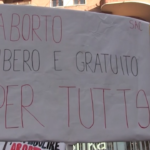 ABORTO
IBERO E GRATUITO
PER TUTTə